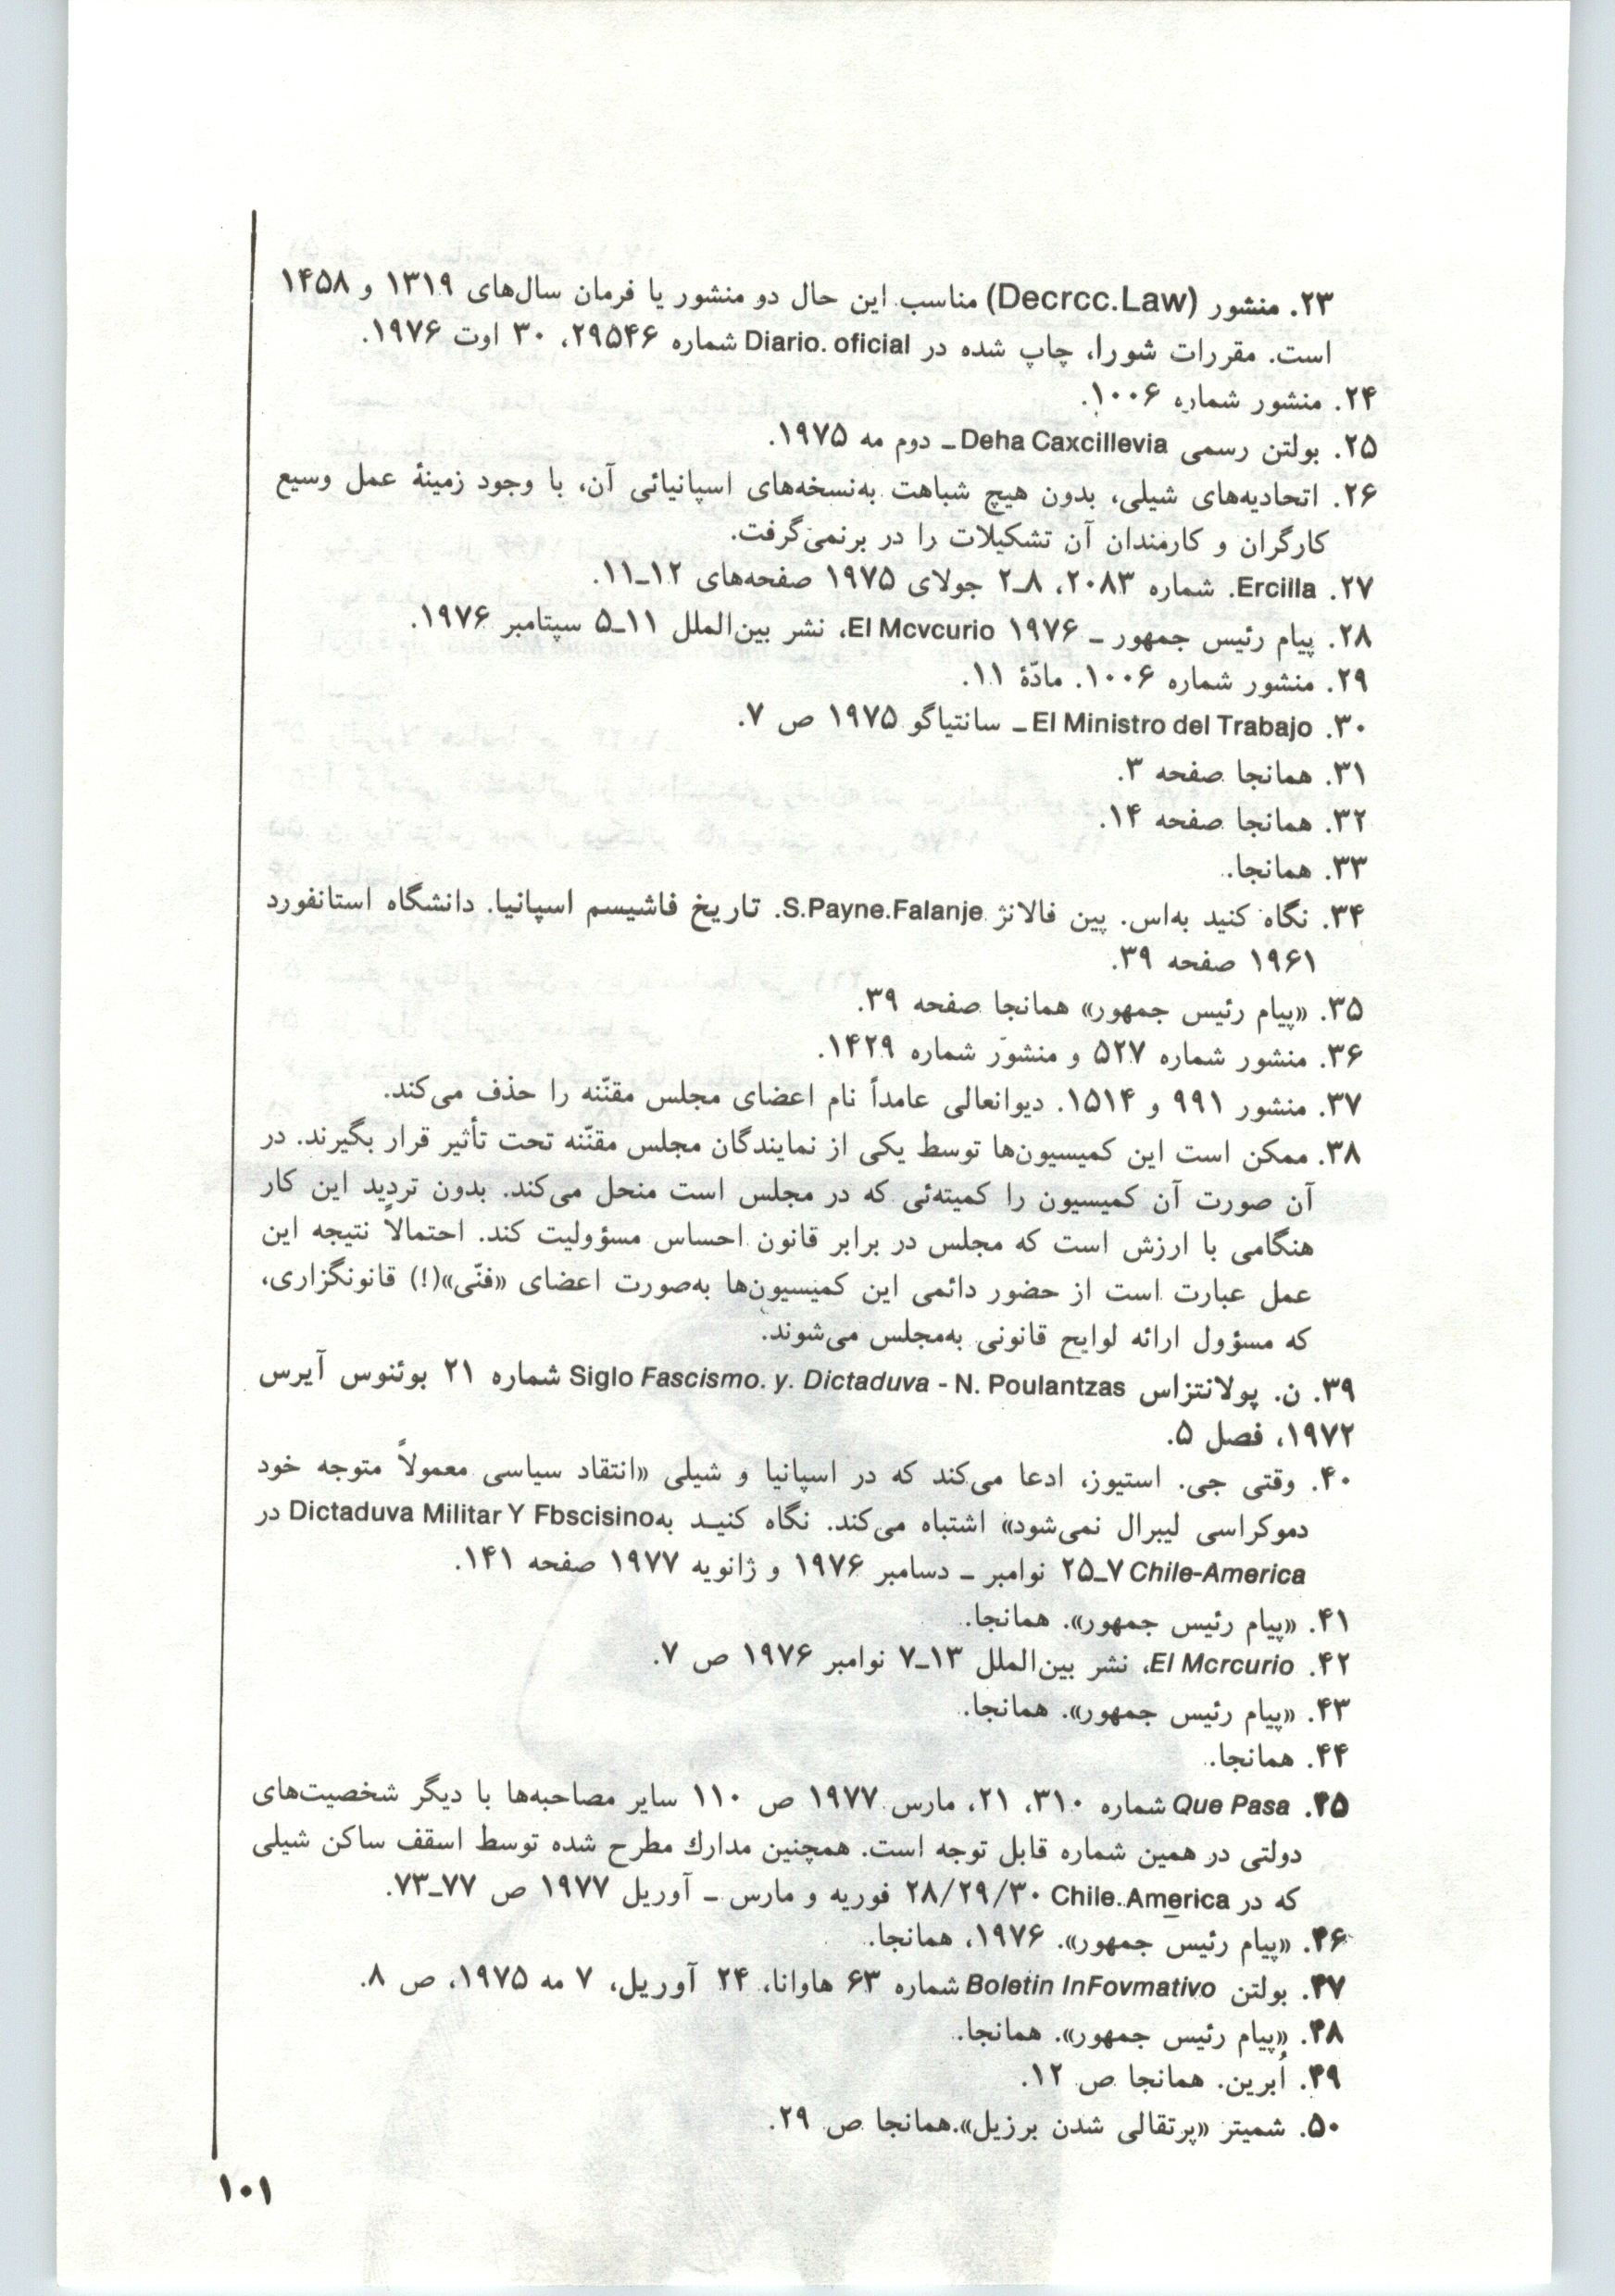 ۲۳. منشور (Decrcc.Law) مناسب این حال دو منشور یا فرمان سال‌های ۱۳۱۹ و ۱۴۵۸
است. مقررات شورا، چاپ شده در Diario. oficial شماره ۲۹۵۴۶، ۳۰ اوت ۱۹۷۶.
۲۴. منشور شماره ۱۰۰۶.
۲۵. بولتن رسمی Deha Caxcillevia ـ دوم مه ۱۹۷۵.
۲۶. اتحادیه‌های شیلی، بدون هیچ شباهت به‌نسخه‌های اسپانیائی آن، با وجود زمینهٔ عمل وسیع
کارگران و کارمندان آن تشکیلات را در برنمی‌گرفت.
۲۷. Ercilla. شماره ۲۰۸۳، ۸ـ۲ جولای ۱۹۷۵ صفحه‌های ۱۲ـ۱۱.
۲۸. پیام رئیس جمهور ـ ۱۹۷۶ El Mcvcurio، نشر بین‌الملل ۱۱ـ۵ سپتامبر ۱۹۷۶.
۲۹. منشور شماره ۱۰۰۶. مادّهٔ ۱۱.
۳۰. El Ministro del Trabajo ـ سانتیاگو ۱۹۷۵ ص ۷.
۳۱. همانجا صفحه ۳.
۳۲. همانجا صفحه ۱۴.
۳۳. همانجا.
۳۴. نگاه کنید به‌اس. پین فالانژ S.Payne.Falanje. تاریخ فاشیسم اسپانیا. دانشگاه استانفورد
۱۹۶۱ صفحه ۳۹.
۳۵. «پیام رئیس جمهور» همانجا صفحه ۳۹.
۳۶. منشور شماره ۵۲۷ و منشور شماره ۱۴۲۹.
۳۷. منشور ۹۹۱ و ۱۵۱۴. دیوانعالی عامداً نام اعضای مجلس مقنّنه را حذف می‌کند.
۳۸. ممکن است این کمیسیون‌ها توسط یکی از نمایندگان مجلس مقنّنه تحت تأثیر قرار بگیرند. در
آن صورت آن کمیسیون را کمیته‌ئی که در مجلس است منحل می‌کند. بدون تردید این کار
هنگامی با ارزش است که مجلس در برابر قانون احساس مسؤولیت کند. احتمالاً نتیجه این
عمل عبارت است از حضور دائمی این کمیسیون‌ها به‌صورت اعضای «فنّی»(!) قانونگزاری،
که مسؤول ارائه لوایح قانونی به‌مجلس می‌شوند.
۳۹. ن. پولانتزاس Siglo Fascismo. y. Dictaduva - N. Poulantzas شماره ۲۱ بوئنوس آیرس
۱۹۷۲، فصل ۵.
۴۰. وقتی جی. استیوز، ادعا می‌کند که در اسپانیا و شیلی «انتقاد سیاسی معمولاً متوجه خود
دموکراسی لیبرال نمی‌شود» اشتباه می‌کند. نگاه کنید به‌Dictaduva Militar Y Fbscisino در
Chile-America ۲۵ـ۷ نوامبر ـ دسامبر ۱۹۷۶ و ژانویه ۱۹۷۷ صفحه ۱۴۱.
۴۱. «پیام رئیس جمهور». همانجا.
۴۲. El Mcrcurio، نشر بین‌الملل ۱۳ـ۷ نوامبر ۱۹۷۶ ص ۷.
۴۳. «پیام رئیس جمهور». همانجا.
۴۴. همانجا.
۴۵. Que Pasa شماره ۳۱۰، ۲۱، مارس ۱۹۷۷ ص ۱۱۰ سایر مصاحبه‌ها با دیگر شخصیت‌های
دولتی در همین شماره قابل توجه است. همچنین مدارك مطرح شده توسط اسقف ساکن شیلی
که در Chile.America ۲۸/۲۹/۳۰ فوریه و مارس ـ آوریل ۱۹۷۷ ص ۷۷ـ۷۳.
۴۶. «پیام رئیس جمهور». ۱۹۷۶، همانجا.
۴۷. بولتن Boletin InFovmativo شماره ۶۳ هاوانا، ۲۴ آوریل، ۷ مه ۱۹۷۵، ص ۸.
۴۸. «پیام رئیس جمهور». همانجا.
۴۹. اُبرین. همانجا ص ۱۲.
۵۰. شمیتر «پرتقالی شدن برزیل».همانجا ص ۲۹.
۱۰۱